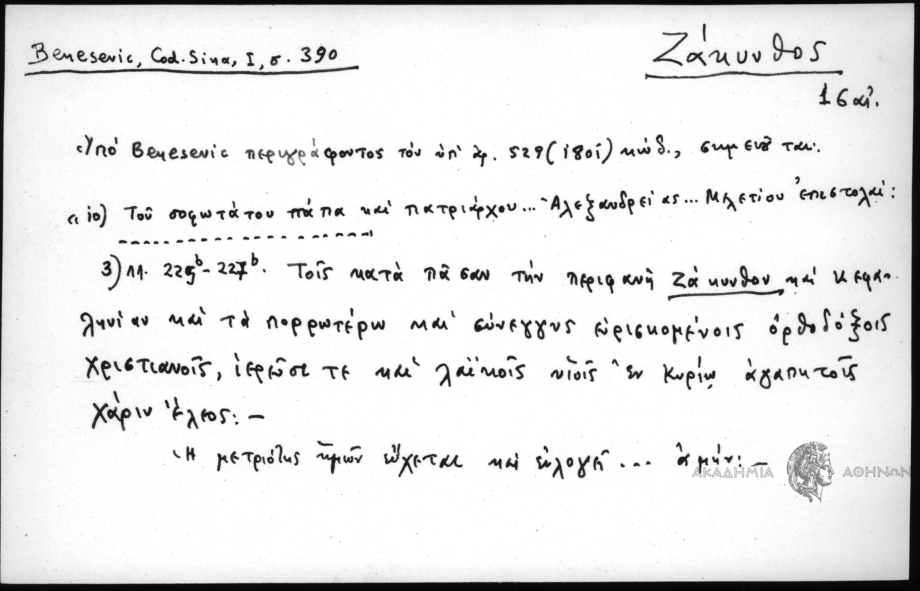 Benesevic, Cod. Sina, I, σ. 390
Ζάκυνθος
16 αἰ.
Ὑπό Benesevic περιγράφοντος τόν ὑπ' ἀρ. 529 (1801) κώδ., σημειοῦται:
« 10) Τοῦ σοφωτάτου πάπα καί πατριάρχου... Ἀλεξανδρείας... Μελετίου ἐπιστολαί:
3) λλ. 225b - 227b. Τοῖς κατά πᾶσαν τήν περιφανῆ Ζάκυνθον καί Κεφαλ-
ληνίαν καί τά πορρωτέρω καί σύνεγγυς εὑρισκομένοις ὀρθοδόξοις
χριστιανοῖς, ἱερεῦσί τε καί λαϊκοῖς υἱοῖς ἐν Κυρίῳ ἀγαπητοῖς
χάριν ἔλεος: –
Ἡ μετριότης ἡμῶν εὔχεται καί εὐλογεῖ... ἀμήν: –
ΑΚΑΔΗΜΙΑ ΑΘΗΝΩΝ